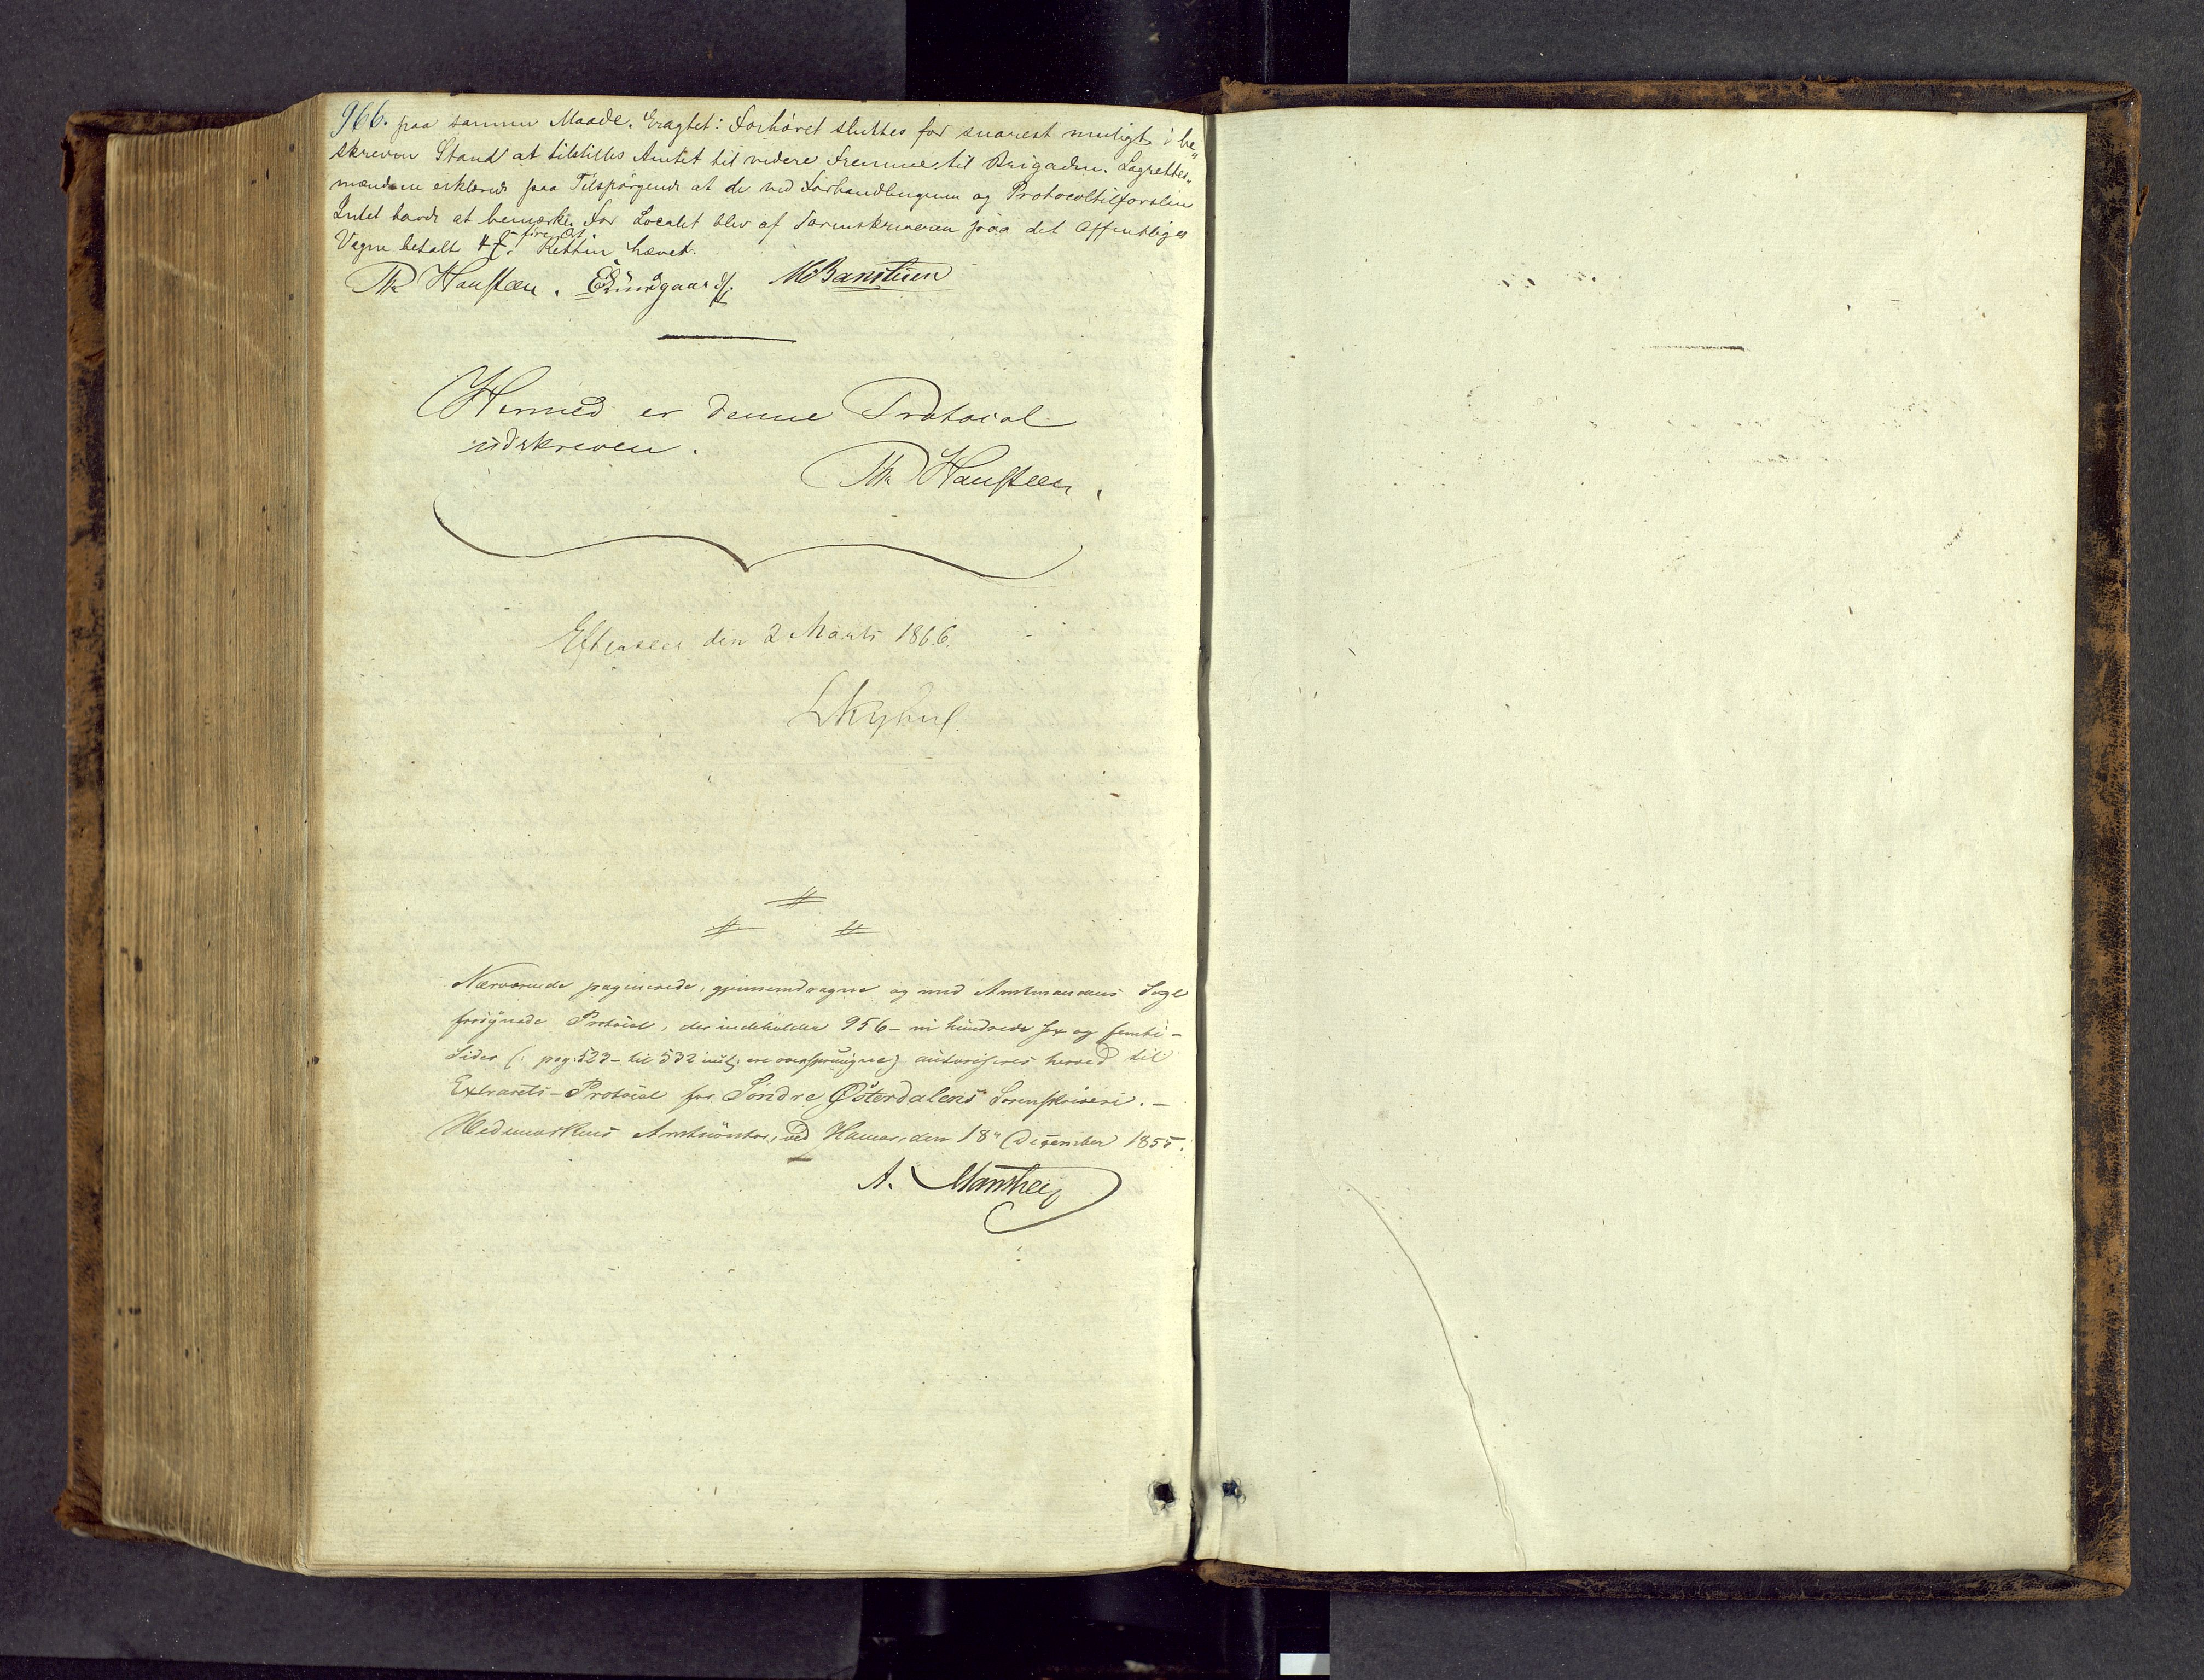 966. paa samme Maade. Eragtet: Forhøret sluttes for snarest muligt i be„
skreven Stand at tilstilles Amtet til videre Fremme til Brigaden. Lagrettes„
mændene erklærede paa Tilspørgende at de ved Forhandlingerne og Protocoltilførslen
Intet havde at bemærke. For Localet blev af Sorenskriveren paa det Offentliges
Vegne betalt fire Ort
Retten hævet.
Th Hansteen.
Hermed er denne Protocol
udskreven.
Th Hansteen.
Efterseet den 2 Marts 1866.
Nærværende paginerede, gjennemdragne og med Amtmandens Segl
forsynede Protocol, der indeholder 956 - ni hundrede sex og femti -
Sider (: pag: 523 - til 532 incl: ere oversprungne) autoriseres herved til
Extrarets-Protocol for Søndre Østerdalens Sorenskriveri. -
Hedemarkens Amtscontor, ved Hamar, den 18de December 1855.
A. Manthey